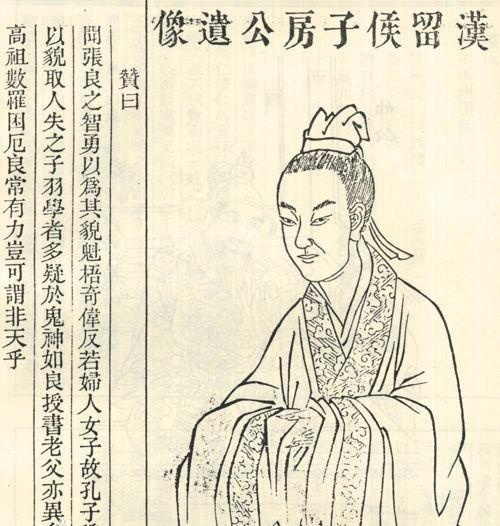 漢留侯子房公遺像
贊曰
聞張良之智勇以爲其貌魁梧奇偉反若婦人女子故孔子
以貌取人失之子羽學者多疑於鬼神如良授書老父亦異
高祖數罹困厄良常有力豈可謂非天乎